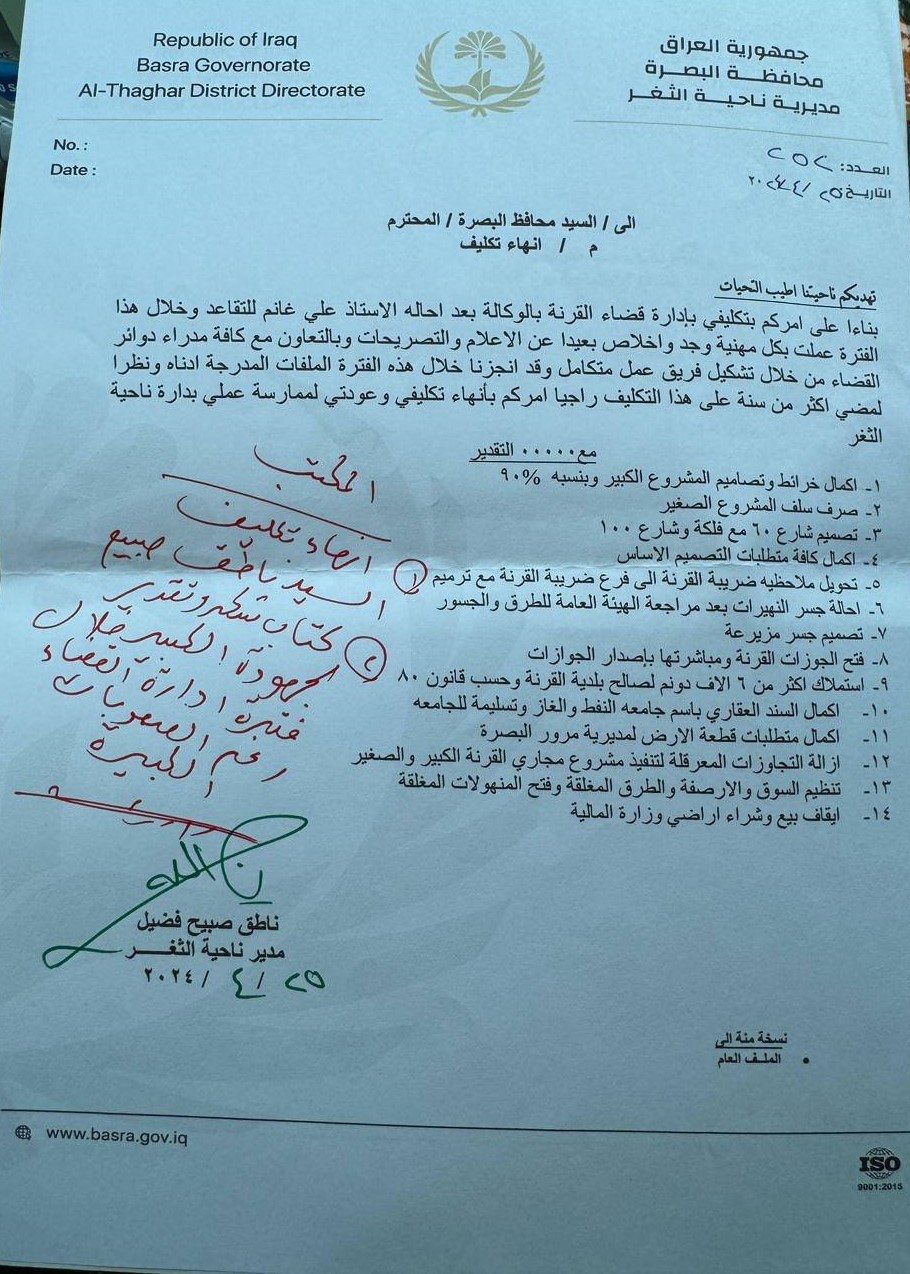 Republic of Iraq
Basra Governorate
Al-Thaghar District Directorate
جمهورية العراق
محافظة البصرة
مديرية ناحية الثغر
No. :
Date :
العدد: ٢٥٢
التاريخ ٢٥/٤/٢٠٢٤
الى / السيد محافظ البصرة / المحترم
م / انهاء تكليف
تهديكم ناحيتنا اطيب التحيات
بناءا على امركم بتكليفي بإدارة قضاء القرنة بالوكالة بعد احاله الاستاذ علي غانم للتقاعد وخلال هذا
الفترة عملت بكل مهنية وجد واخلاص بعيدا عن الاعلام والتصريحات وبالتعاون مع كافة مدراء دوائر
القضاء من خلال تشكيل فريق عمل متكامل وقد انجزنا خلال هذه الفترة الملفات المدرجة ادناه ونظرا
لمضي اكثر من سنة على هذا التكليف راجيا امركم بأنهاء تكليفي وعودتي لممارسة عملي بدارة ناحية
الثغر
مع ..... التقدير
١- اكمال خرائط وتصاميم المشروع الكبير وبنسبه ٩٠%
٢- صرف سلف المشروع الصغير
٣- تصميم شارع ٦٠ مع فلكة وشارع ١٠٠
٤- اكمال كافة متطلبات التصميم الاساس
٥- تحويل ملاحظيه ضريبة القرنة الى فرع ضريبة القرنة مع ترميم
٦- احالة جسر النهيرات بعد مراجعة الهيئة العامة للطرق والجسور
٧- تصميم جسر مزيرعة
٨- فتح الجوزات القرنة ومباشرتها بإصدار الجوازات
٩- استملاك اكثر من ٦ الاف دونم لصالح بلدية القرنة وحسب قانون ٨٠
١٠- اكمال السند العقاري باسم جامعه النفط والغاز وتسليمة للجامعه
١١- اكمال متطلبات قطعة الارض لمديرية مرور البصرة
١٢- ازالة التجاوزات المعرقلة لتنفيذ مشروع مجاري القرنة الكبير والصغير
١٣- تنظيم السوق والارصفة والطرق المغلقة وفتح المنهولات المغلقة
١٤- ايقاف بيع وشراء اراضي وزارة المالية
المكتب
١ انهاء تكليف
السيد ناطق صبيح
٢ كتاب شكر وتقدير
لجهودة الكبيرة خلال
فترة ادارة القضاء
رغم الصعوبات
الكبيرة
ناطق صبيح فضيل
مدير ناحية الثغر
٢٥ / ٤ / ٢٠٢٤
نسخة منة الى
• الملف العام
www.basra.gov.iq
ISO
9001:2015